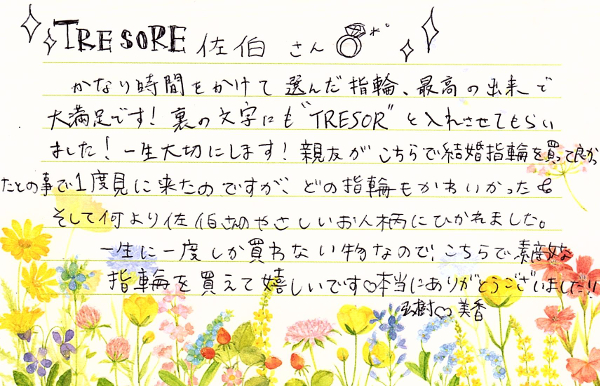 TRESORE 佐伯 さん へ°
かなり時間をかけて選んだ指輪、最高の出来で
大満足です! 裏の文字にも"TRESOR"と入れさせてもらい
ました! 一生大切にします! 親友がこちらで結婚指輪を買って良かっ
たとの事で1度見に来たのですが、どの指輪もかわいかったし
そして何より佐伯さんのやさしいお人柄にひかれました。
一生に一度しか買わない物なので、こちらで素敵な
指輪を買えて嬉しいです♡本当にありがとうございました!!
♡美香